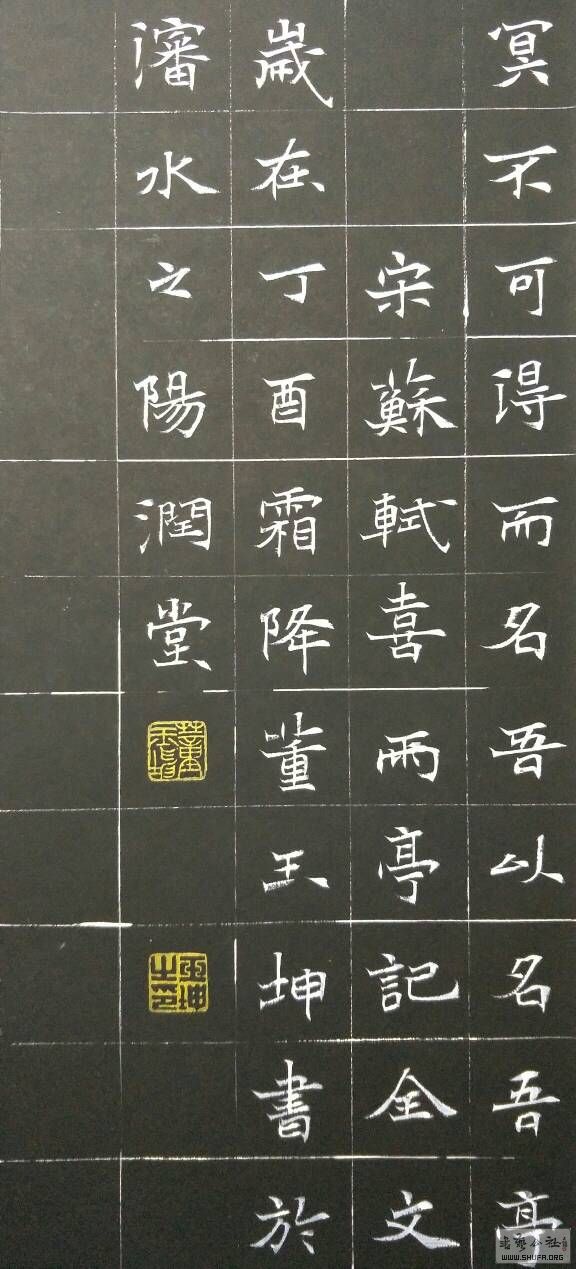 冥不可得而名吾以名吾亭
宋蘇軾喜雨亭記全文
歲在丁酉霜降董玉坤書於
瀋水之陽潤堂
玉坤之印
WWW.SHUFA.ORG